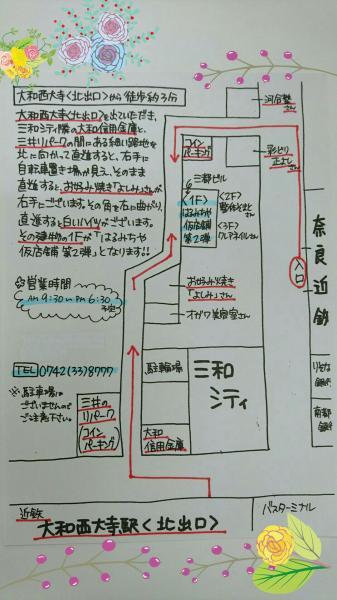 大和西大寺<北出口>から徒歩約3分
大和西大寺<北出口>を出ていただき、
三和シティ隣の大和信用金庫と、
三井リパークの間にある細い路地を
北に向かって直進すると、右手に
自転車置き場が見え、そのまま
直進するとお好み焼き「よしみ」さんが
右手にございます。その角を右に曲がり、
直進すると白いハイツがございます。
その建物の1Fが「はるみちや
仮店舗 第2弾」となります!!
営業時間
AM 9:30~PM 6:30
予定
TEL 0742(33)8777
※駐車場は
ございませんので
ご注意下さい。
三井の
リパーク
コイン
パーキング
コイン
パーキング
三都ビル
<1F>
はるみちや
仮店舗
第2弾
<2F>
さん
<3F>
クレアネイルさん
河合塾
さん
彩とり
正よし
さん
入口
奈良近鉄
お好み焼き
「よしみ」さん
オガワ美容室さん
駐輪場
三和
シティ
大和
信用金庫
りそな
銀行
南都
銀行
近鉄
大和西大寺駅<北出口>
バスターミナル